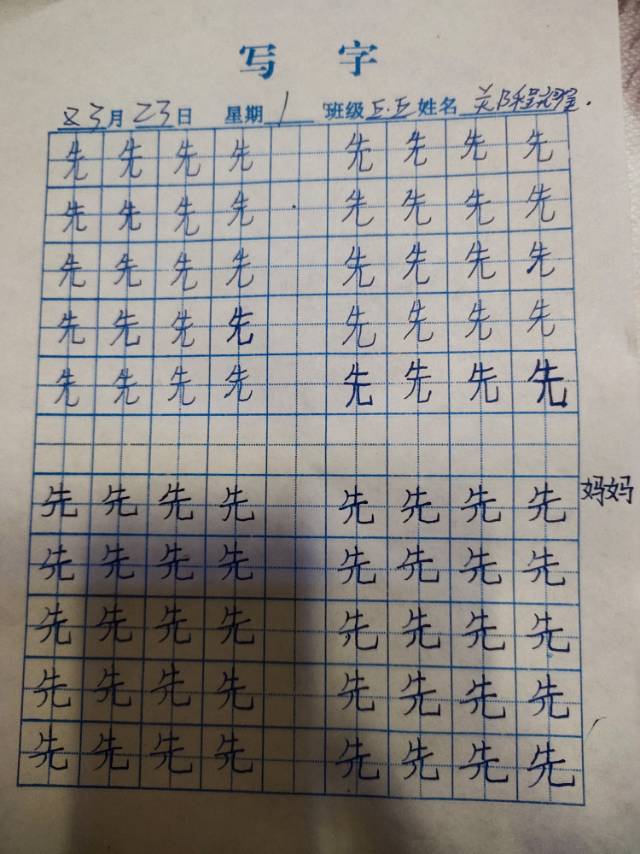 写 字
3月 23日 星期 1 班级 五.五 姓名
先 先 先 先 先 先 先 先
先 先 先 先 先 先 先 先
先 先 先 先 先 先 先 先
先 先 先 先 先 先 先 先
先 先 先 先 先 先 先 先
先 先 先 先 先 先 先 先 妈妈
先 先 先 先 先 先 先 先
先 先 先 先 先 先 先 先
先 先 先 先 先 先 先 先
先 先 先 先 先 先 先 先